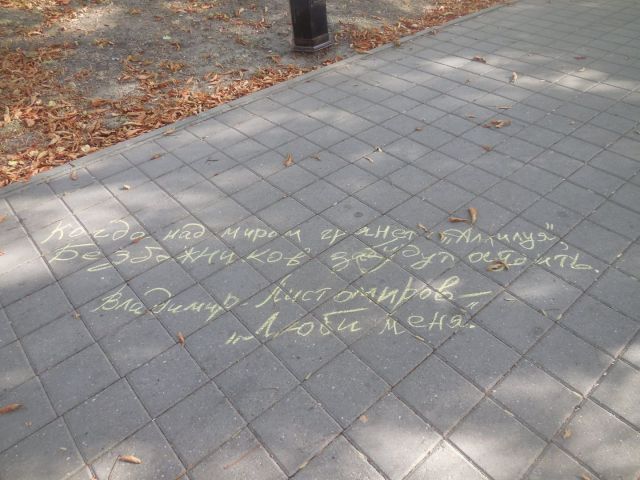 Когда над миром грянет „Аллилуя",
Безбожников забудут
Владимир Листомиров –
„Люби меня".